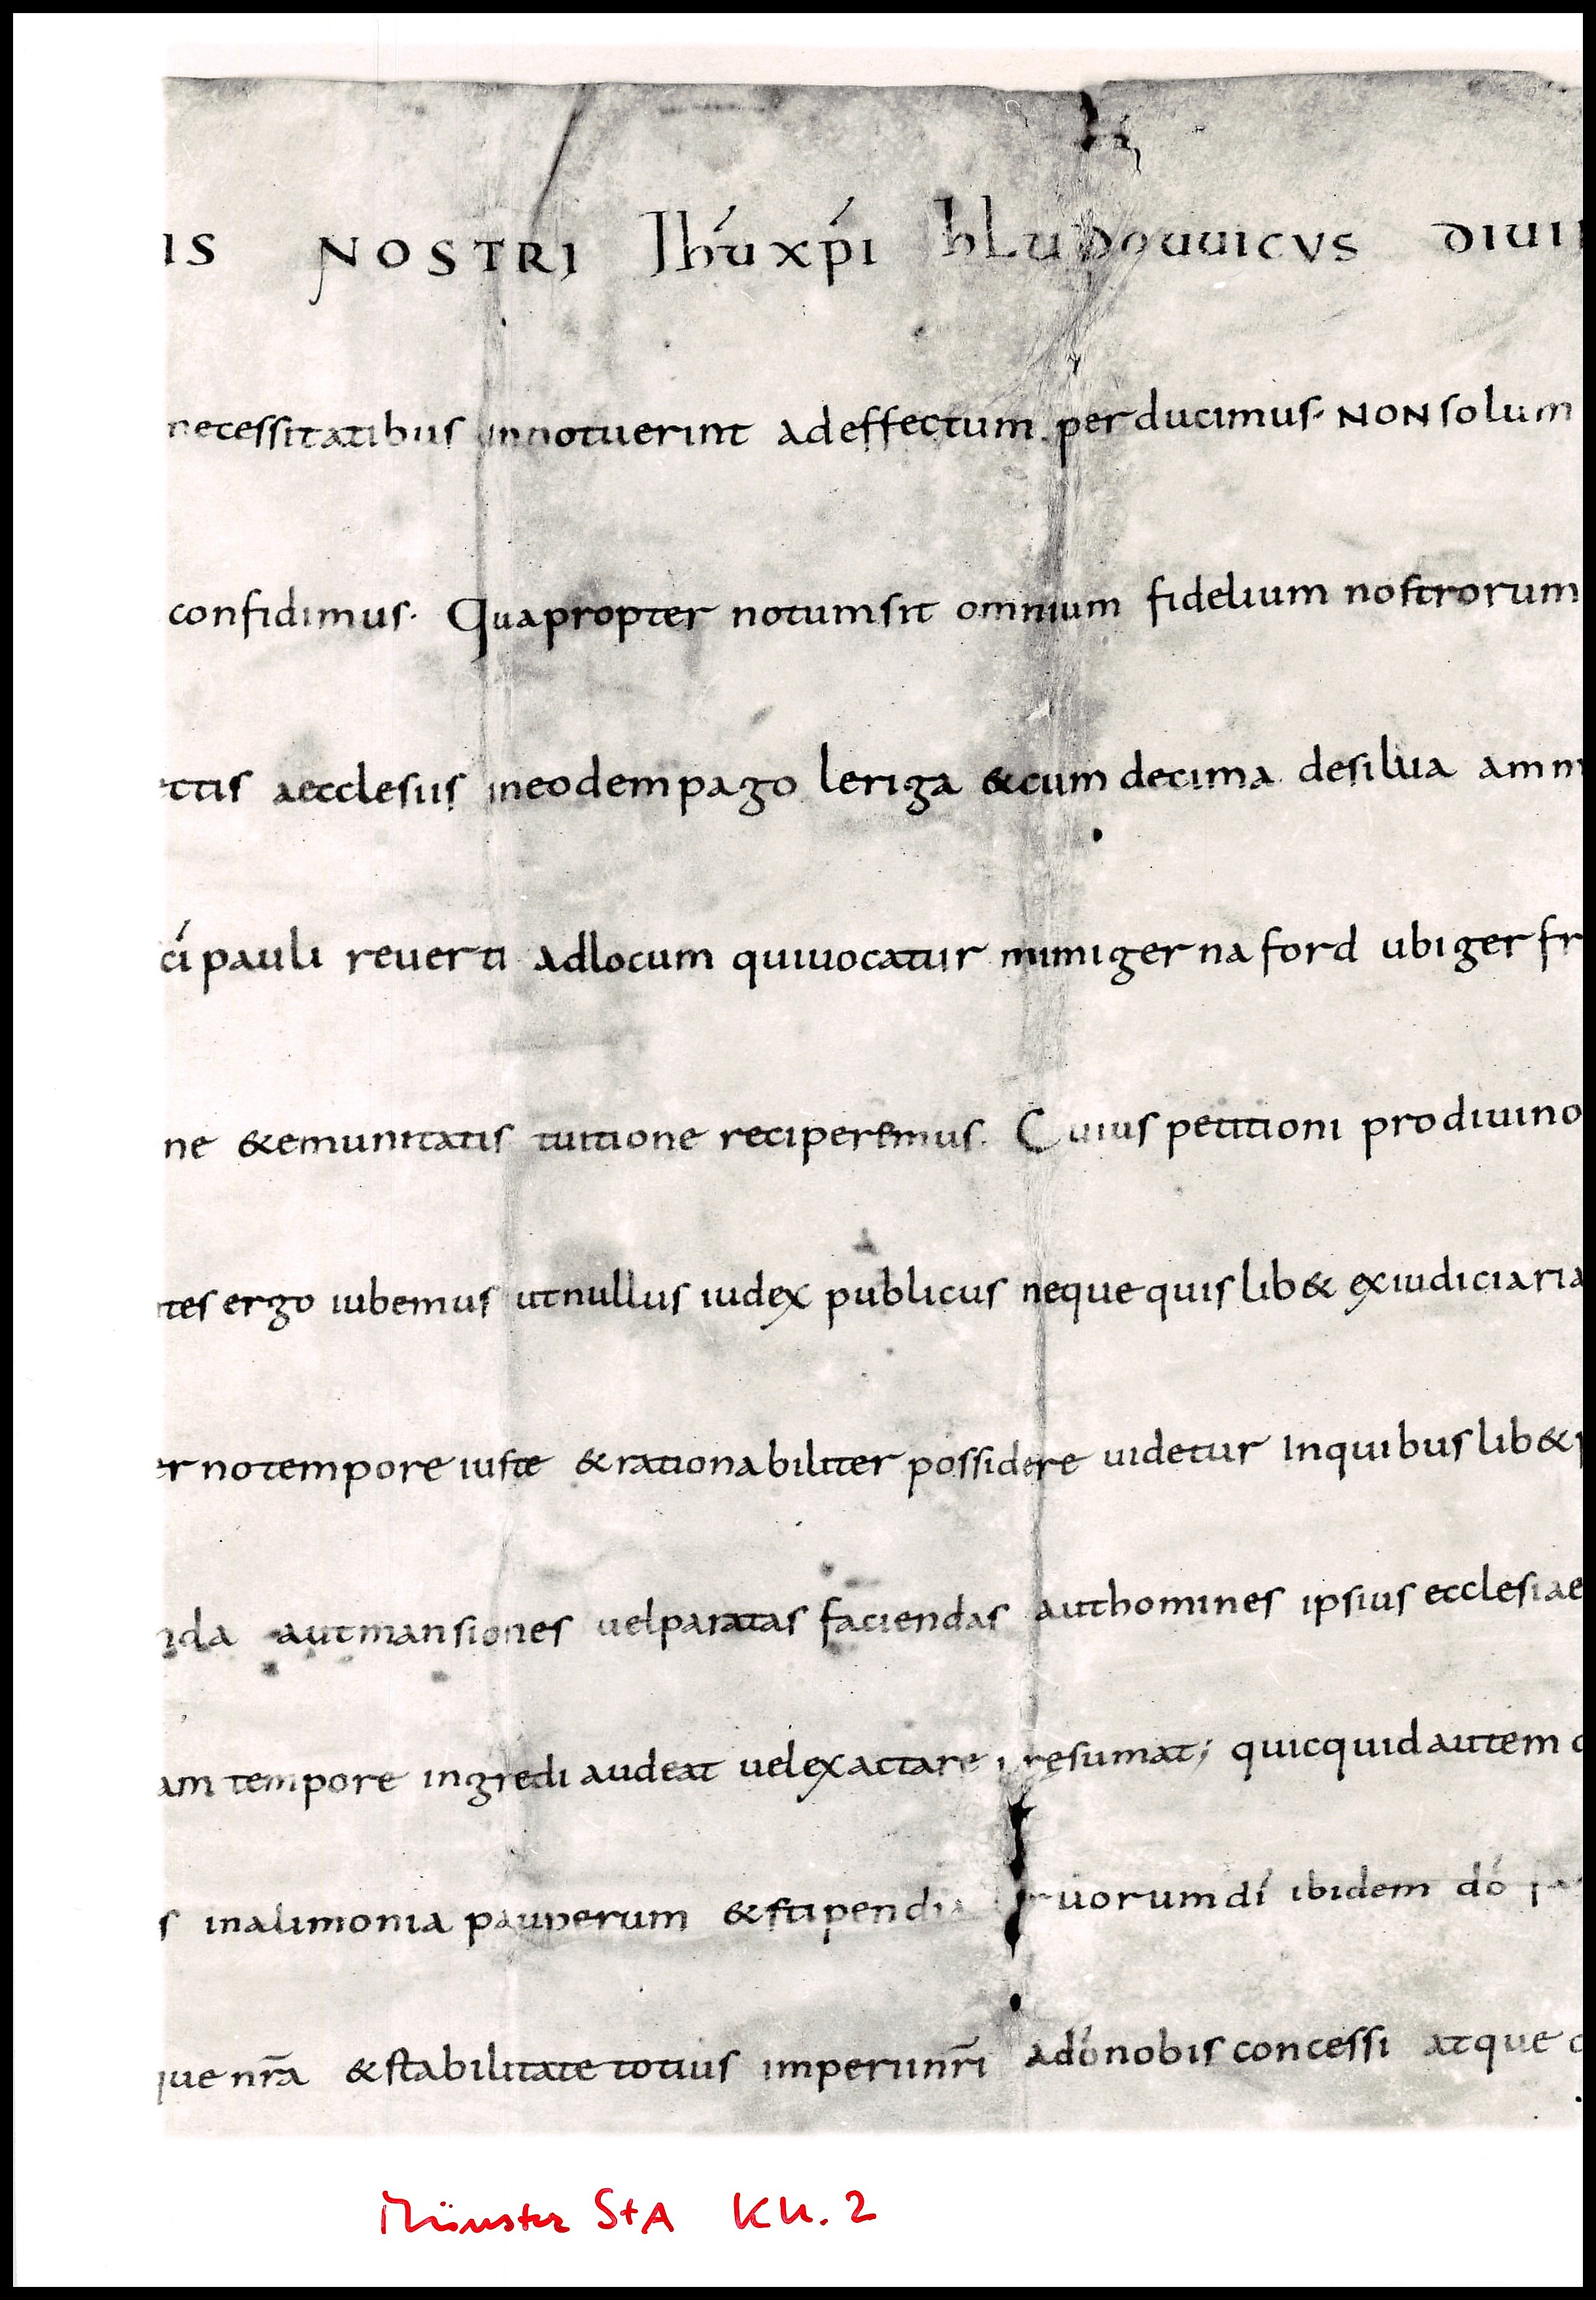 IS NOSTRI Ihú xpí hLuDouuicvs DIUI
necessitatibus innotuerint adeffectum perducimus· NON solum
confidimus· Quapropter notumsit omnium fidelium nostrorum
ectis aecclesiis ineodempago leriga &cum decima desilua amm
cí pauli reuerti adlocum quiuocatur mimigernaford ubi gerfr
ne &emunitatis tuitione reciperemus. Cuius petitioni prodiuino
tes ergo iubemus utnullus iudex publicus nequequislib& exiudiciaria
er notempore iuste &rationabiliter possidere uidetur Inquibuslib&
nda autmansiones uelparatas faciendas authomines ipsius ecclesiae
am tempore ingredi audeat uelexactare resumat; quicquidautem
s inalimonia pauperum &stipendia uorumdí ibidem dó
que nr̄a &stabilitate totius imperiinr̄i adónobis concessi atque
Münster StA KU. 2